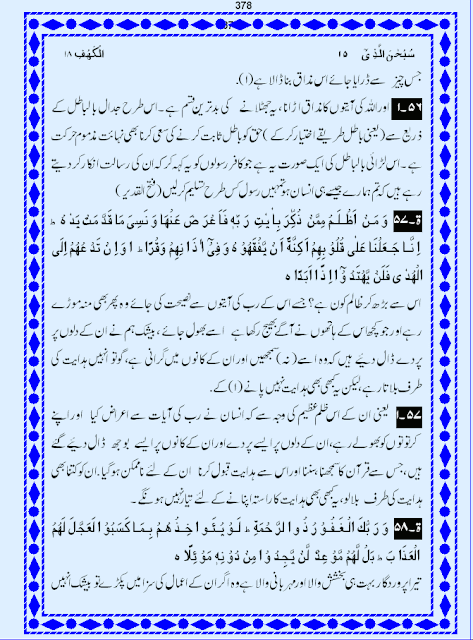 378
37
سُبْحٰنَ الَّذِيْ ۱۵ الْكَهْفِ ۱۸
جس چیز سے ڈرایا جائے اسے مذاق بنا ڈالا ہے (۱)۔
۵۶۔۱ اور اللہ کی آیتوں کا مذاق اڑانا، یہ جھٹلانے کی بدترین قسم ہے۔ اس طرح جدال بالباطل کے
ذریعے سے (یعنی باطل طریقے اختیار کر کے) حق کو باطل ثابت کرنے کی سعی کرنا بھی نہایت مذموم حرکت
ہے۔ اس لڑائی بالباطل کی ایک صورت یہ ہے جو کافر رسولوں کو یہ کہہ کر کہ ان کی رسالت انکار کر دیتے
رہے ہیں کہ تم ہمارے جیسے ہی انسان ہو تمہیں رسول کس طرح تسلیم کر لیں (فتح القدیر)
ۃ۔۵۷ وَ مَنْ اَظْلَمُ مِمَّنْ ذُكِّرَ بِاٰيٰتِ رَبِّهٖ فَاَعْرَضَ عَنْهَا وَ نَسِيَ مَا قَدَّمَتْ يَدٰهُ ؕ
اِنَّا جَعَلْنَا عَلٰى قُلُوْبِهِمْ اَكِنَّةً اَنْ يَّفْقَهُوْهُ وَ فِيْۤ اٰذَانِهِمْ وَقْرًا ؕ وَ اِنْ تَدْعُهُمْ اِلَى
الْهُدٰى فَلَنْ يَّهْتَدُوْۤا اِذًا اَبَدًا ہ
اس سے بڑھ کر ظالم کون ہے؟ جسے اس کے رب کی آیتوں سے نصیحت کی جائے وہ پھر بھی منہ موڑے
رہے اور جو کچھ اس کے ہاتھوں نے آگے بھیج رکھا ہے اسے بھول جائے، بیشک ہم نے ان کے دلوں پر
پردے ڈال دیئے ہیں کہ وہ اسے (نہ) سمجھیں اور ان کے کانوں میں گرانی ہے، گو تو انہیں ہدایت کی
طرف بلاتا رہے، لیکن یہ کبھی بھی ہدایت نہیں پانے (۱) کے۔
۵۷۔۱ یعنی ان کے اس ظلم عظیم کی وجہ سے کہ انسان نے رب کی آیات سے اعراض کیا اور اپنے
کرتوتوں کو بھولے رہے، ان کے دلوں پر ایسے پردے اور ان کے کانوں پر ایسے بوجھ ڈال دیئے گئے
ہیں، جس سے قرآن کا سمجھنا سننا اور اس سے ہدایت قبول کرنا ان کے لئے ناممکن ہو گیا۔ ان کو کتنا بھی
ہدایت کی طرف بلا لو، یہ کبھی بھی ہدایت کا راستہ اپنانے کے لئے تیار نہیں ہونگے۔
ۃ۔۵۸ وَ رَبُّكَ الْغَفُوْرُ ذُو الرَّحْمَةِ ؕ لَوْ يُؤَاخِذُهُمْ بِمَا كَسَبُوْا لَعَجَّلَ لَهُمُ
الْعَذَابَ ؕ بَلْ لَّهُمْ مَّوْعِدٌ لَّنْ يَّجِدُوْا مِنْ دُوْنِهٖ مَوْئِلًا ہ
تیرا پروردگار بہت ہی بخشش والا اور مہربانی والا ہے وہ اگر ان کے اعمال کی سزا میں پکڑے تو بیشک انہیں